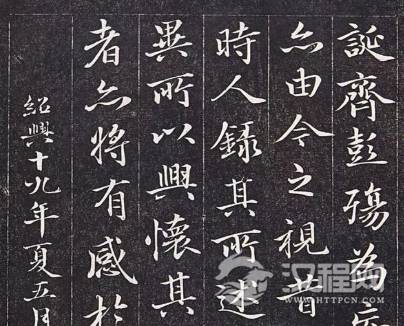 誕齊彭殤為妄
亦由今之視昔
時人錄其所述
異所以興懷其
者亦將有感於
紹興十九年夏五月
汉程网
HTTPCN.COM